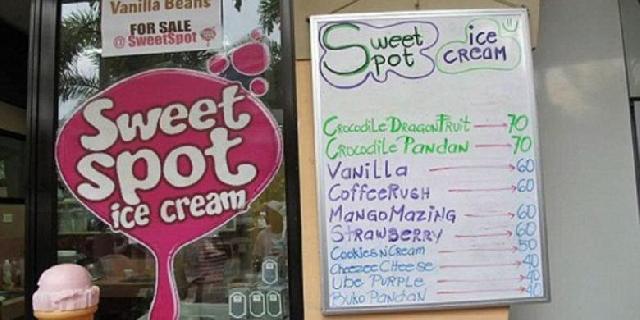 Vanilla Beans
FOR SALE
@ SweetSpot
Sweet
spot
ice cream
Sweet Spot
ice CREAM
CROCODiLE DRAGONFRUIT 70
CROCODiLE PANDAN 70
VANiLLA 60
COFFEERUSH 60
MANGOMAZiNG 60
STRAWBERRY 60
COOKiESNCREAM 50
CHEEZEECHEESE 40
UBE PURPLE 40
BUKO PANDAN 40